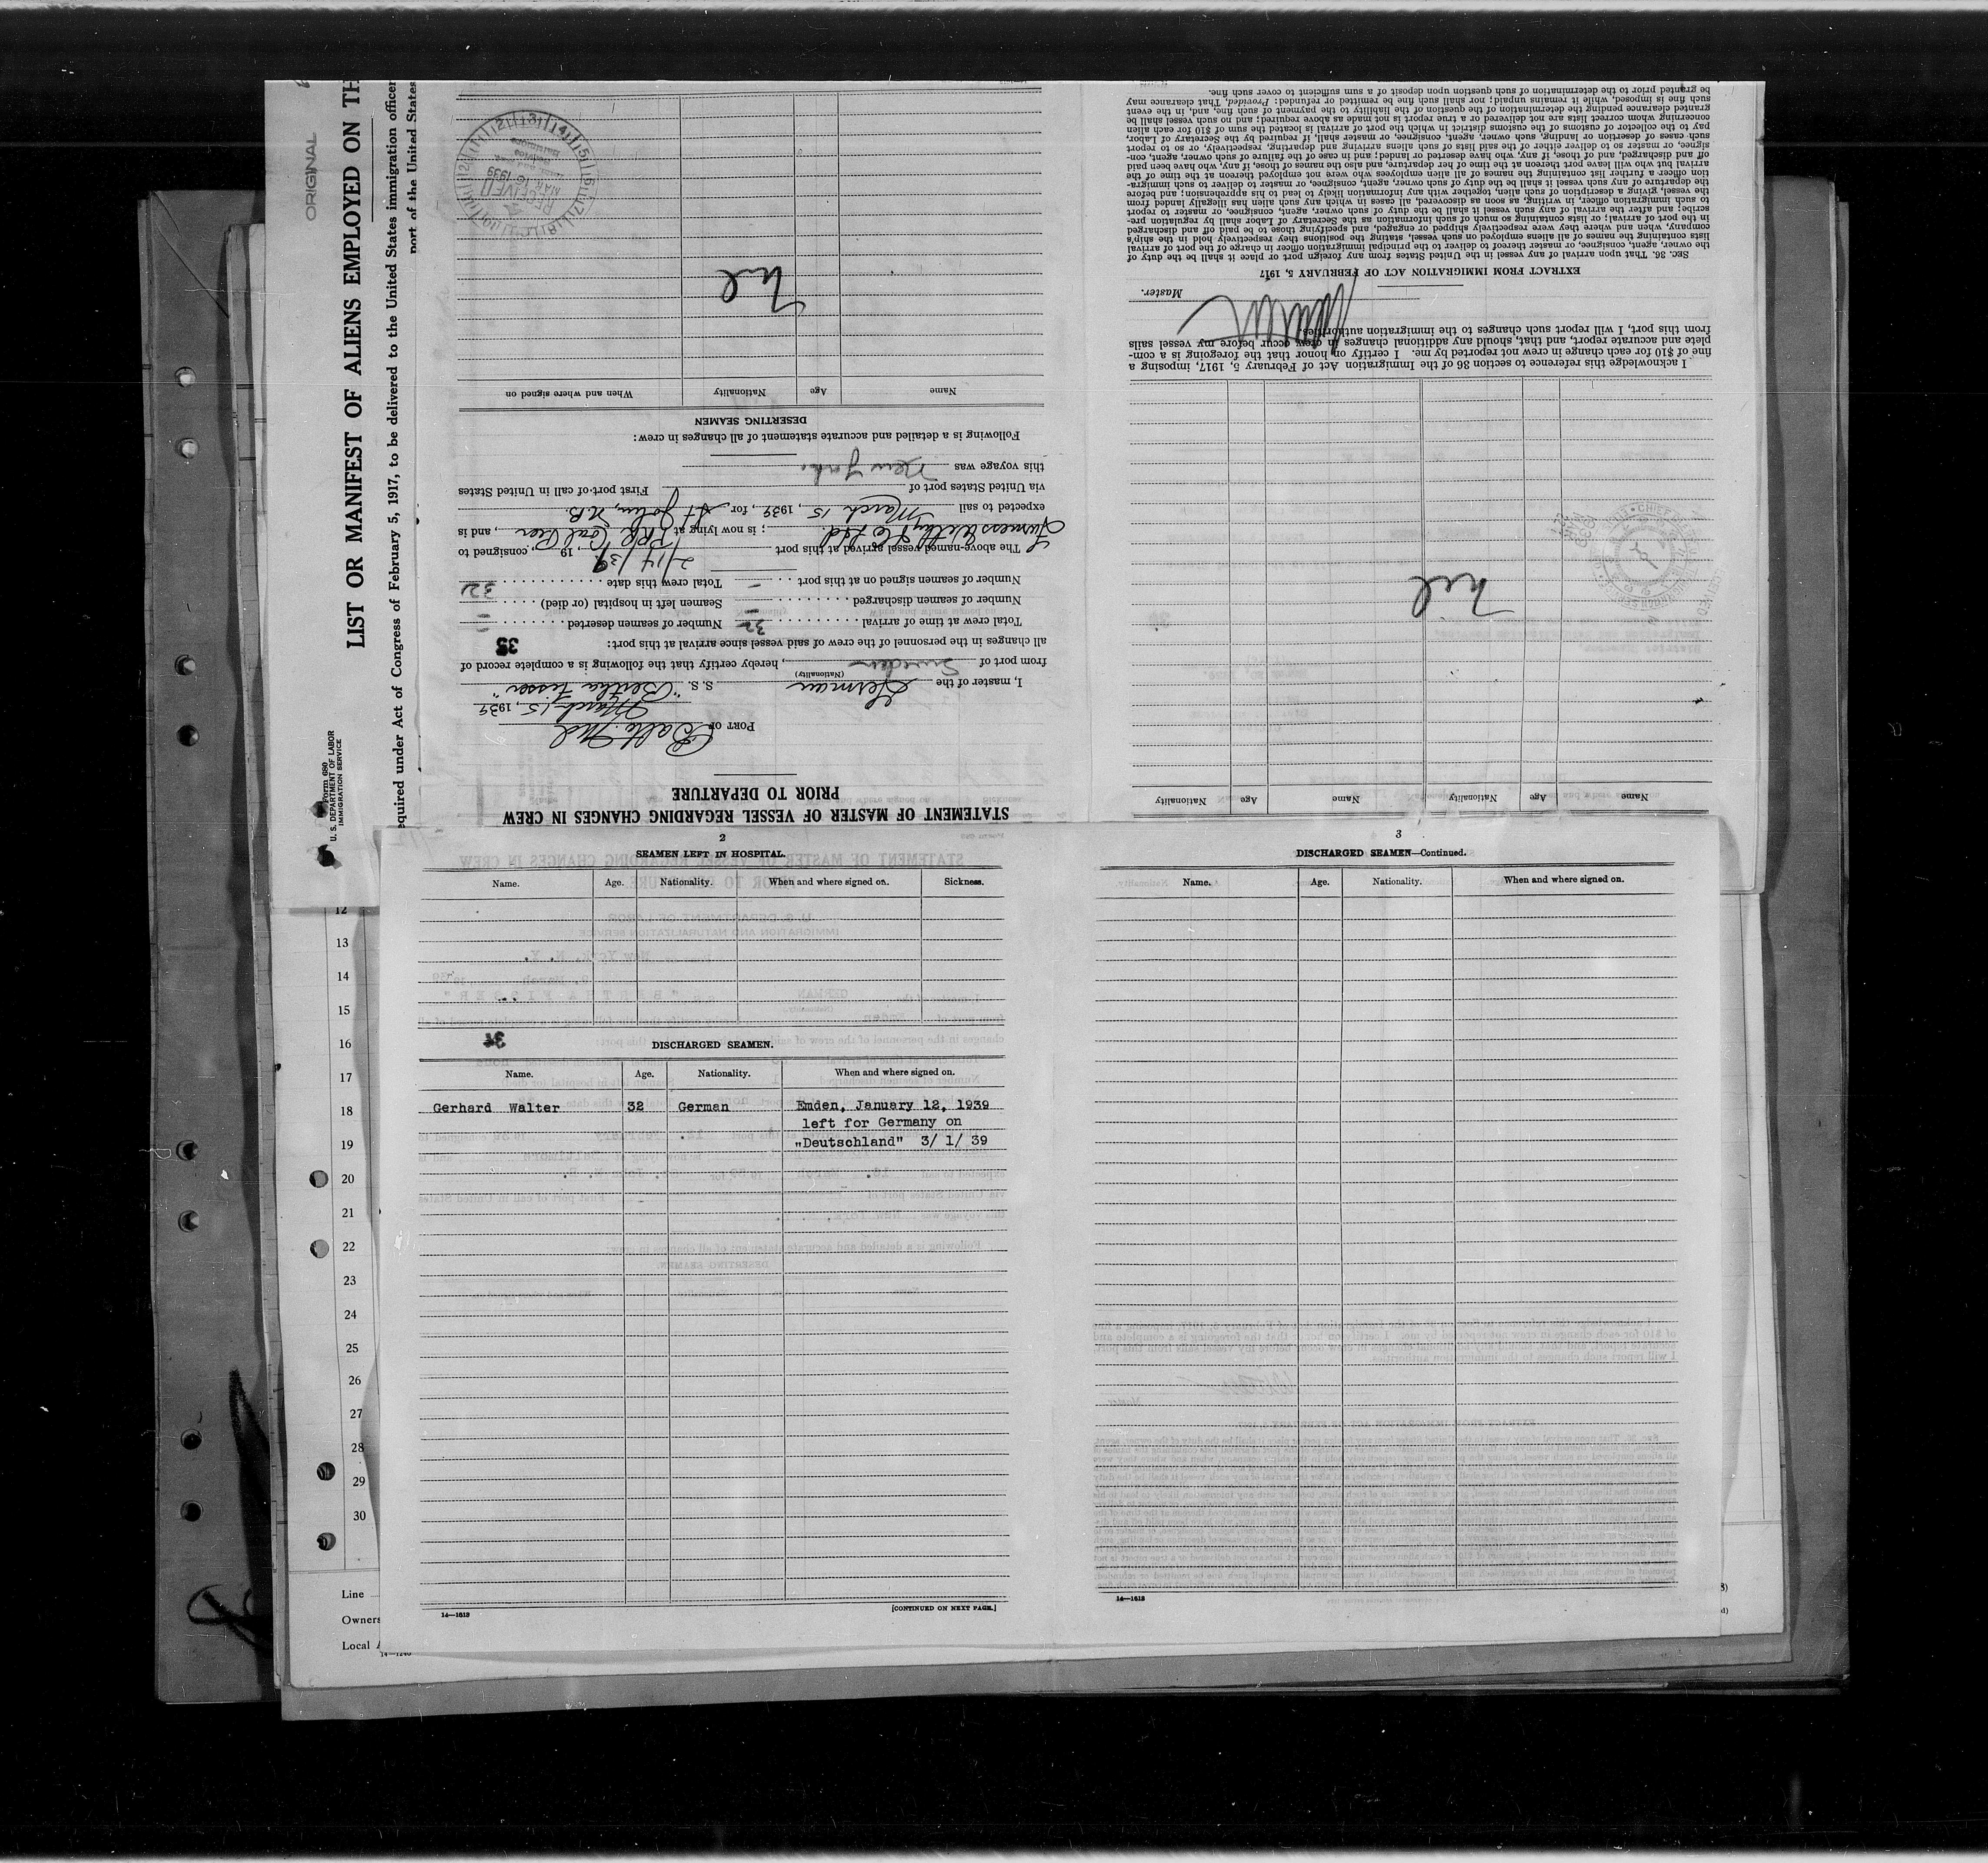 ORIGINAL
LIST OR MANIFEST OF ALIENS EMPLOYED ON TH
equired under Act of Congress of February 5, 1917, to be delivered to the United States immigration officer
port of the United States
Form 680
U. S. DEPARTMENT OF LABOR
IMMIGRATION SERVICE
STATEMENT OF MASTER OF VESSEL REGARDING CHANGES IN CREW
PRIOR TO DEPARTURE
PORT OF Balto. Md
March 15, 1939
I, master of the German S. S. "Bertha Fisser"
(Nationality)
from port of Sweden, hereby certify that the following is a complete record of
all changes in the personnel of the crew of said vessel since arrival at this port:
Total crew at time of arrival 32 Number of seamen deserted —
Number of seamen discharged — Seamen left in hospital (or died) —
Number of seamen signed on at this port — Total crew this date 32
The above-named vessel arrived at this port 2/14/39 19 , consigned to
Furness Withy & Co Ltd. ; is now lying at PRR Coal Pier , and is
expected to sail March 15, 1939, for St John, N.B.
via United States port of First port of call in United States
this voyage was New York.
Following is a detailed and accurate statement of all changes in crew:
DESERTING SEAMEN
Name Age Nationality When and where signed on
Nil
RECEIVED
MAR 16 1939
Name Age Nationality Name Age Nationality
Nil
I acknowledge this reference to section 36 of the Immigration Act of February 5, 1917, imposing a
fine of $10 for each change in crew not reported by me. I certify on honor that the foregoing is a com-
plete and accurate report, and that, should any additional changes in crew occur before my vessel sails
from this port, I will report such changes to the immigration authorities.
Master.
EXTRACT FROM IMMIGRATION ACT OF FEBRUARY 5, 1917
SEC. 36. That upon arrival of any vessel in the United States from any foreign port or place it shall be the duty of
the owner, agent, consignee, or master thereof to deliver to the principal immigration officer in charge of the port of arrival
lists containing the names of all aliens employed on such vessel, stating the positions they respectively hold in the ship's
company, when and where they were respectively shipped or engaged, and specifying those to be paid off and discharged
in the port of arrival; or lists containing so much of such information as the Secretary of Labor shall by regulation pre-
scribe; and after the arrival of any such vessel it shall be the duty of such owner, agent, consignee, or master to report
to such immigration officer, in writing, as soon as discovered, all cases in which any such alien has illegally landed from
the vessel, giving a description of such alien, together with any information likely to lead to his apprehension; and before
the departure of any such vessel it shall be the duty of such owner, agent, consignee, or master to deliver to such immigra-
tion officer a further list containing the names of all alien employees who were not employed thereon at the time of the
arrival but who will leave port thereon at the time of her departure, and also the names of those, if any, who have been paid
off and discharged, and of those, if any, who have deserted or landed; and in case of the failure of such owner, agent, con-
signee, or master so to deliver either of the said lists of such aliens arriving and departing, respectively, or so to report
such cases of desertion or landing, such owner, agent, consignee, or master shall, if required by the Secretary of Labor,
pay to the collector of customs of the customs district in which the port of arrival is located the sum of $10 for each alien
concerning whom correct lists are not delivered or a true report is not made as above required; and no such vessel shall be
granted clearance pending the determination of the question of the liability to the payment of such fine, and, in the event
such fine is imposed, while it remains unpaid; nor shall such fine be remitted or refunded: Provided, That clearance may
be granted prior to the determination of such question upon deposit of a sum sufficient to cover such fine.
2
SEAMEN LEFT IN HOSPITAL.
Name. Age. Nationality. When and where signed on. Sickness.
DISCHARGED SEAMEN.
Name. Age. Nationality. When and where signed on.
Gerhard Walter 32 German Emden, January 12, 1939
left for Germany on
„Deutschland" 3/ 1/ 39
14—1613
[CONTINUED ON NEXT PAGE.]
3
DISCHARGED SEAMEN—Continued.
Name. Age. Nationality. When and where signed on.
14—1613
12
13
14
15
16
17
18
19
20
21
22
23
24
25
26
27
28
29
30
Line
Owners
Local A
14—1240